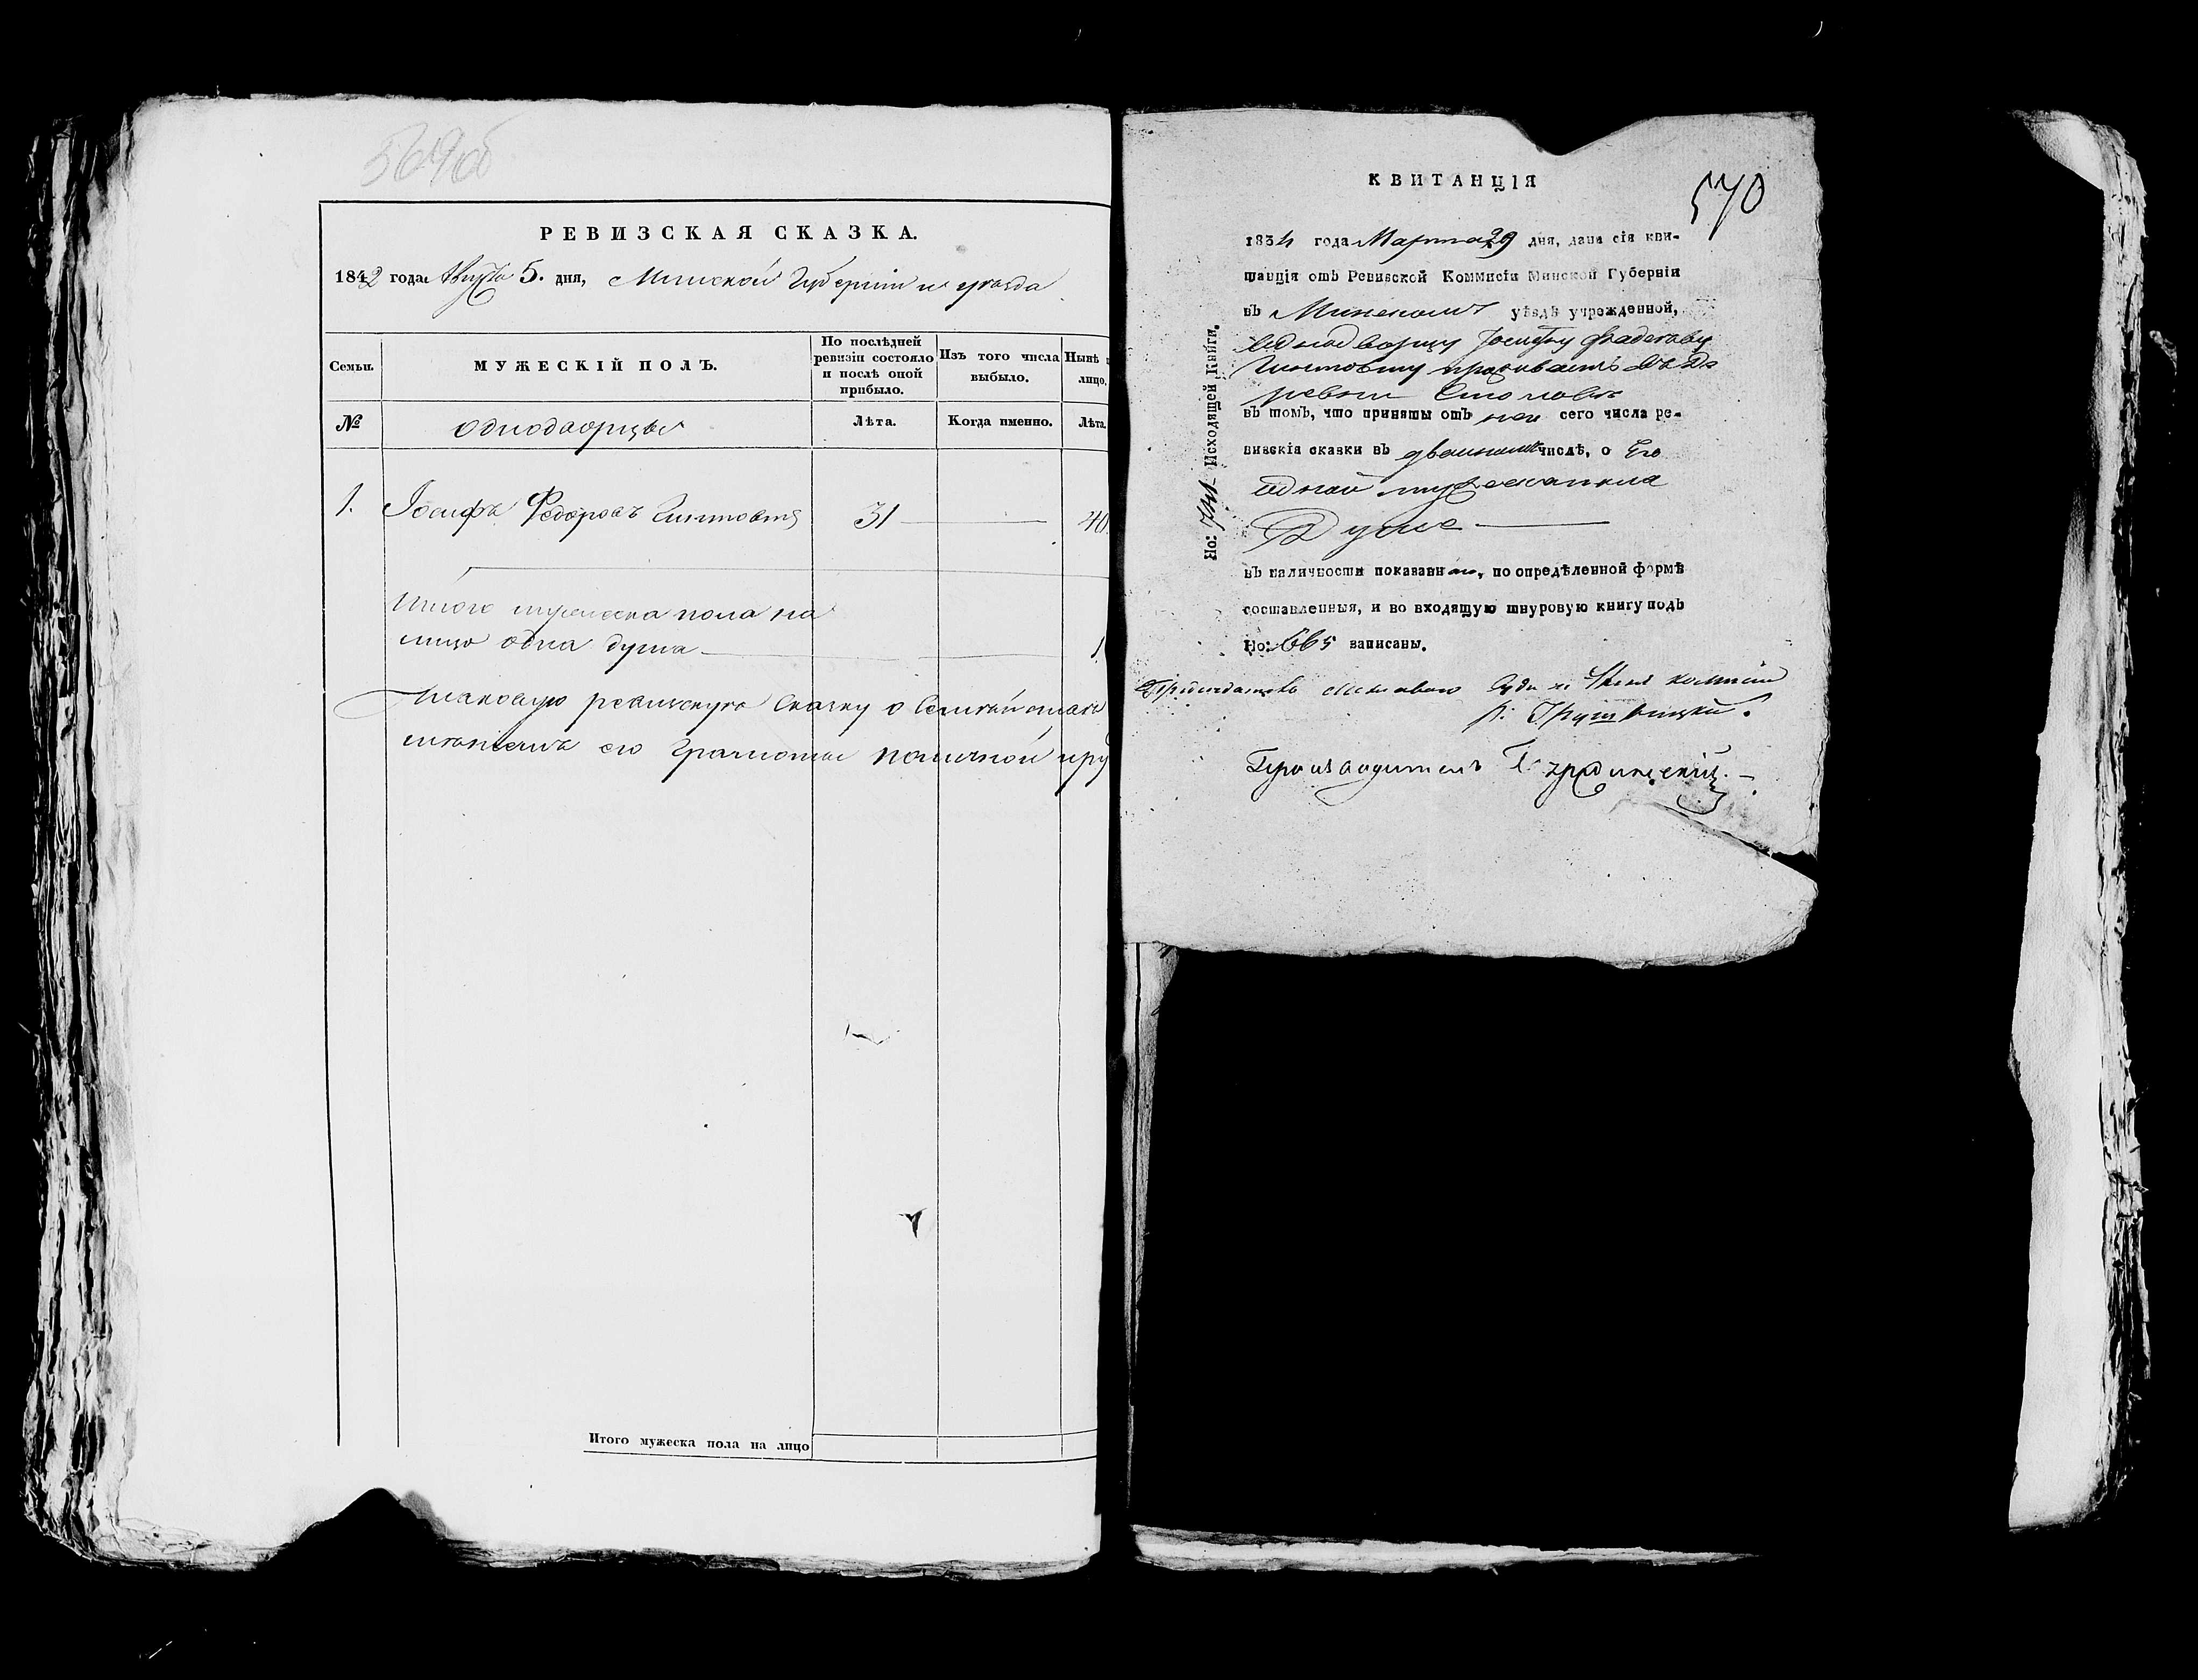 569об
РЕВИЗСКАЯ СКАЗКА.
1842 года Августа 5. дня, Минской Губернiи и уѣзда
Семьи.
МУЖЕСКIЙ ПОЛЪ.
По послѣдней ревизiи состояло и послѣ оной прибыло.
Изъ того числа выбыло.
Нынѣ
лицо.
№
однодворцы
Лѣта.
Когда именно.
Лѣта.
1. Iосифъ Федоровъ 31 40
Итого мужеска пола на
лицо одна душа 1
Таковую ревизскую сказку о
его грамоты
Итого мужеска пола на лицо
КВИТАНЦIЯ
570
1834 года Марта 29 дня, дана сiя кви-
танцiя отъ Ревизской Коммисiи Минской Губернiи
въ Минскомъ уѣздѣ учрежденной,
Однодворцу Iосифу Фадееву
въ де
ревни
въ томъ, что приняты отъ него сего числа ре-
визскiя сказки въ двойномъ числѣ, о Его
одной мужеска пола
Душе
въ наличности показанной, по опредѣленной формѣ
составленныя, и во входящую шнуровую книгу подъ
No: 665 записаны.
No: 741 Исходящей Книги.
Предсѣдатель
Производитель